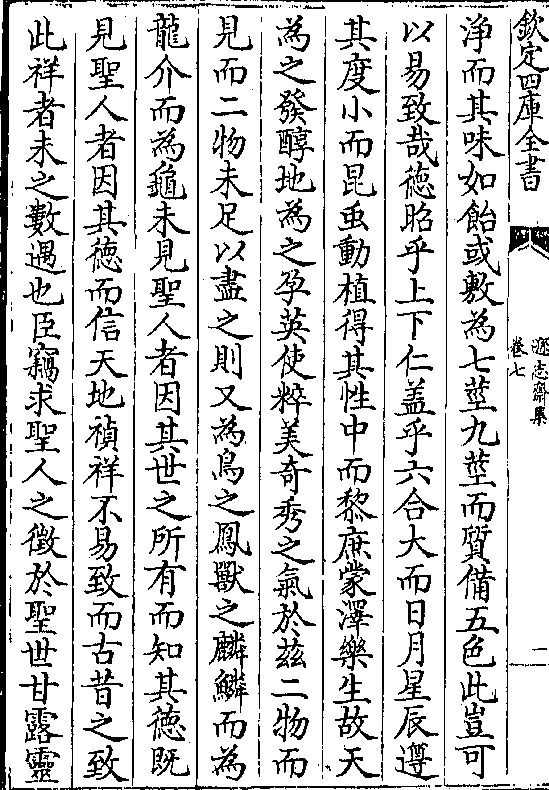 欽定四庫全書
遜志齋集
卷七
一
淨而其味如飴或敷為七莖九莖而質備五色此豈可
以易致哉德昭乎上下仁盖乎六合大而日月星辰遵
其度小而昆虫動植得其性中而黎庶蒙澤樂生故天
為之發醇地為之孕英使粹美奇秀之氣於兹二物而
見而二物未足以盡之則又為鳥之鳳獸之麟鱗而為
龍介而為龜未見聖人者因其世之所有而知其德既
見聖人者因其德而信天地禎祥不易致而古昔之致
此祥者未之數遇也臣竊求聖人之徵於聖世甘露靈